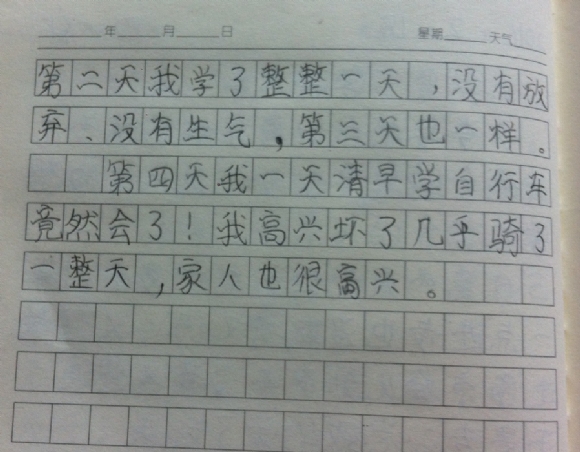 年 月 日 星期 天气
第二天我学了整整一天，没有放
弃、没有生气，第三天也一样。
第四天我一天清早学自行车
竟然会了！我高兴坏了几乎骑了
一整天，家人也很高兴。